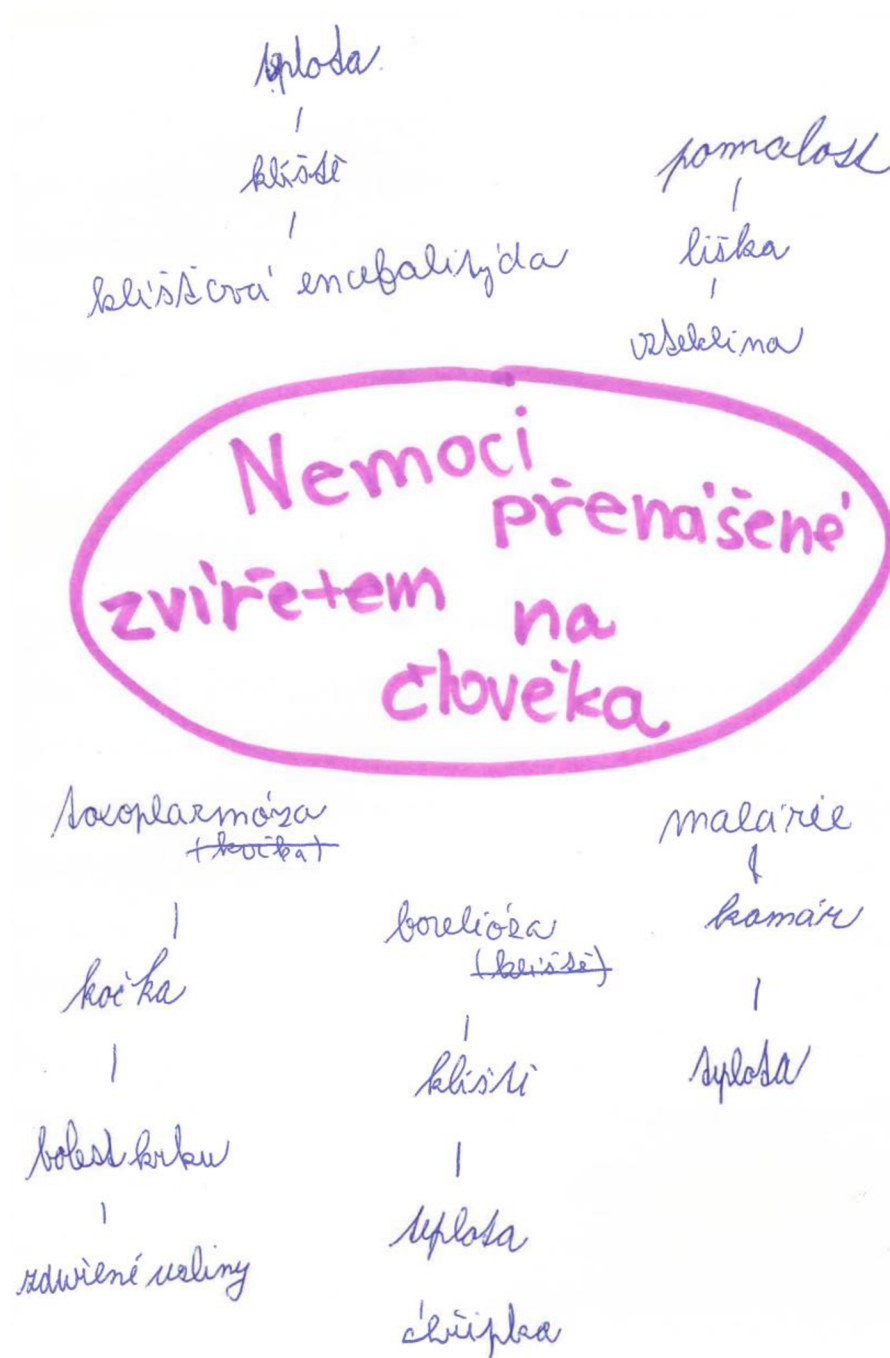 teplota
klíště
klíšťová encefalitýda
pomalost
liška
vzteklina
Nemoci
přenášené
zvířetem na
člověka
toxoplasmóza
(kočka)
kočka
bolest krku
zduřené uzliny
borelióza
(klíště)
klíště
teplota
chřipka
malárie
komár
teplota